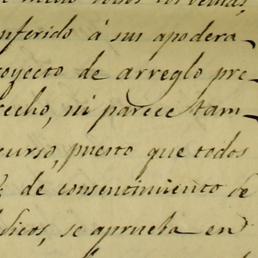 nferido á sus apodera-
royecto de arreglo pre-
recho, ni parece tam-
curso, puesto que todos
de consentimiento de
dicos, se aprueba en